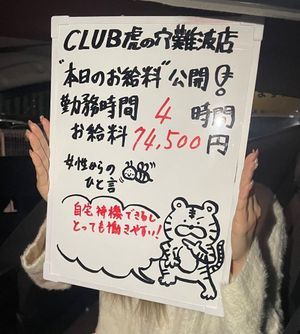 CLUB虎の穴難波店
"本日のお給料"公開!
勤務時間 4 時間
お給料 74,500円
女性からの
ひと言
自宅待機できるし
とっても働きやすい!